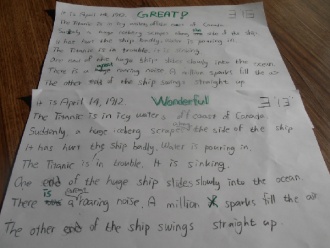 It is April 14, 1912. GREAT!
The Titanic is in icy water off coast of Canada
Suddenly a huge iceberg scrapes the side of the ship
It has hurt the ship badly. Water is pouring in.
The Titanic is in trouble. It is sinking.
One end of the huge ship slides slowly into the ocean.
There is a roaring noise. A million sparks fill the air
The other end of the ship swings straight up
It is April 14, 1912. Wonderful!
The Titanic is in icy waters off coast of Canada
Suddenly, a huge iceberg scrapes the side of the ship
It has hurt the ship badly. Water is pouring in.
The Titanic is in trouble. It is sinking.
One end of the huge ship slides slowly into the ocean.
There is a roaring noise. A million sparks fill the air
The other end of the ship swings straight up